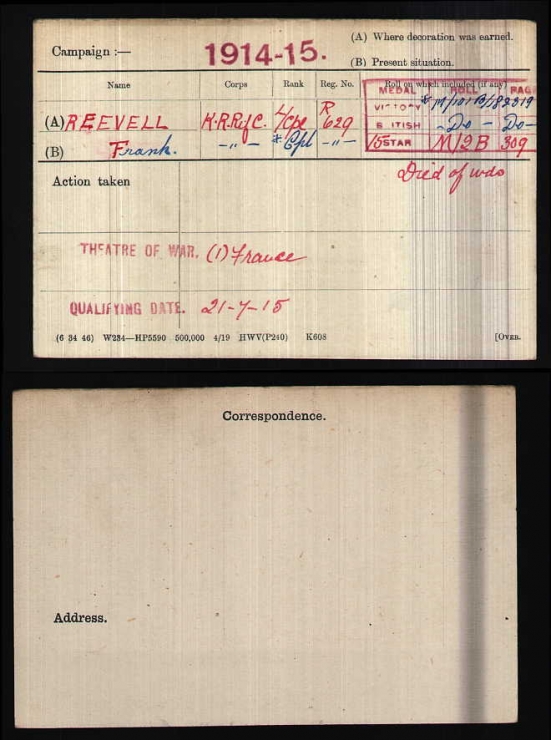 (A) Where decoration was earned.
Campaign :— 1914-15.
(B) Present situation.
Name Corps Rank Reg. No. Roll on which included (if any)
MEDAL ROLL PAGE
VICTORY * M/101B18 2319
(A) REEVELL K.R.Rif.C. L/Cpl R 629
BRITISH - Do - Do -
(B) Frank. - " - * Cpl - " -
15 STAR M/2B 309
Action taken Died of wds
THEATRE OF WAR. (1) France
QUALIFYING DATE. 21-7-15
(6 34 46) W234—HP5590 500,000 4/19 HWV(P240) K608 [OVER.
Correspondence.
Address.